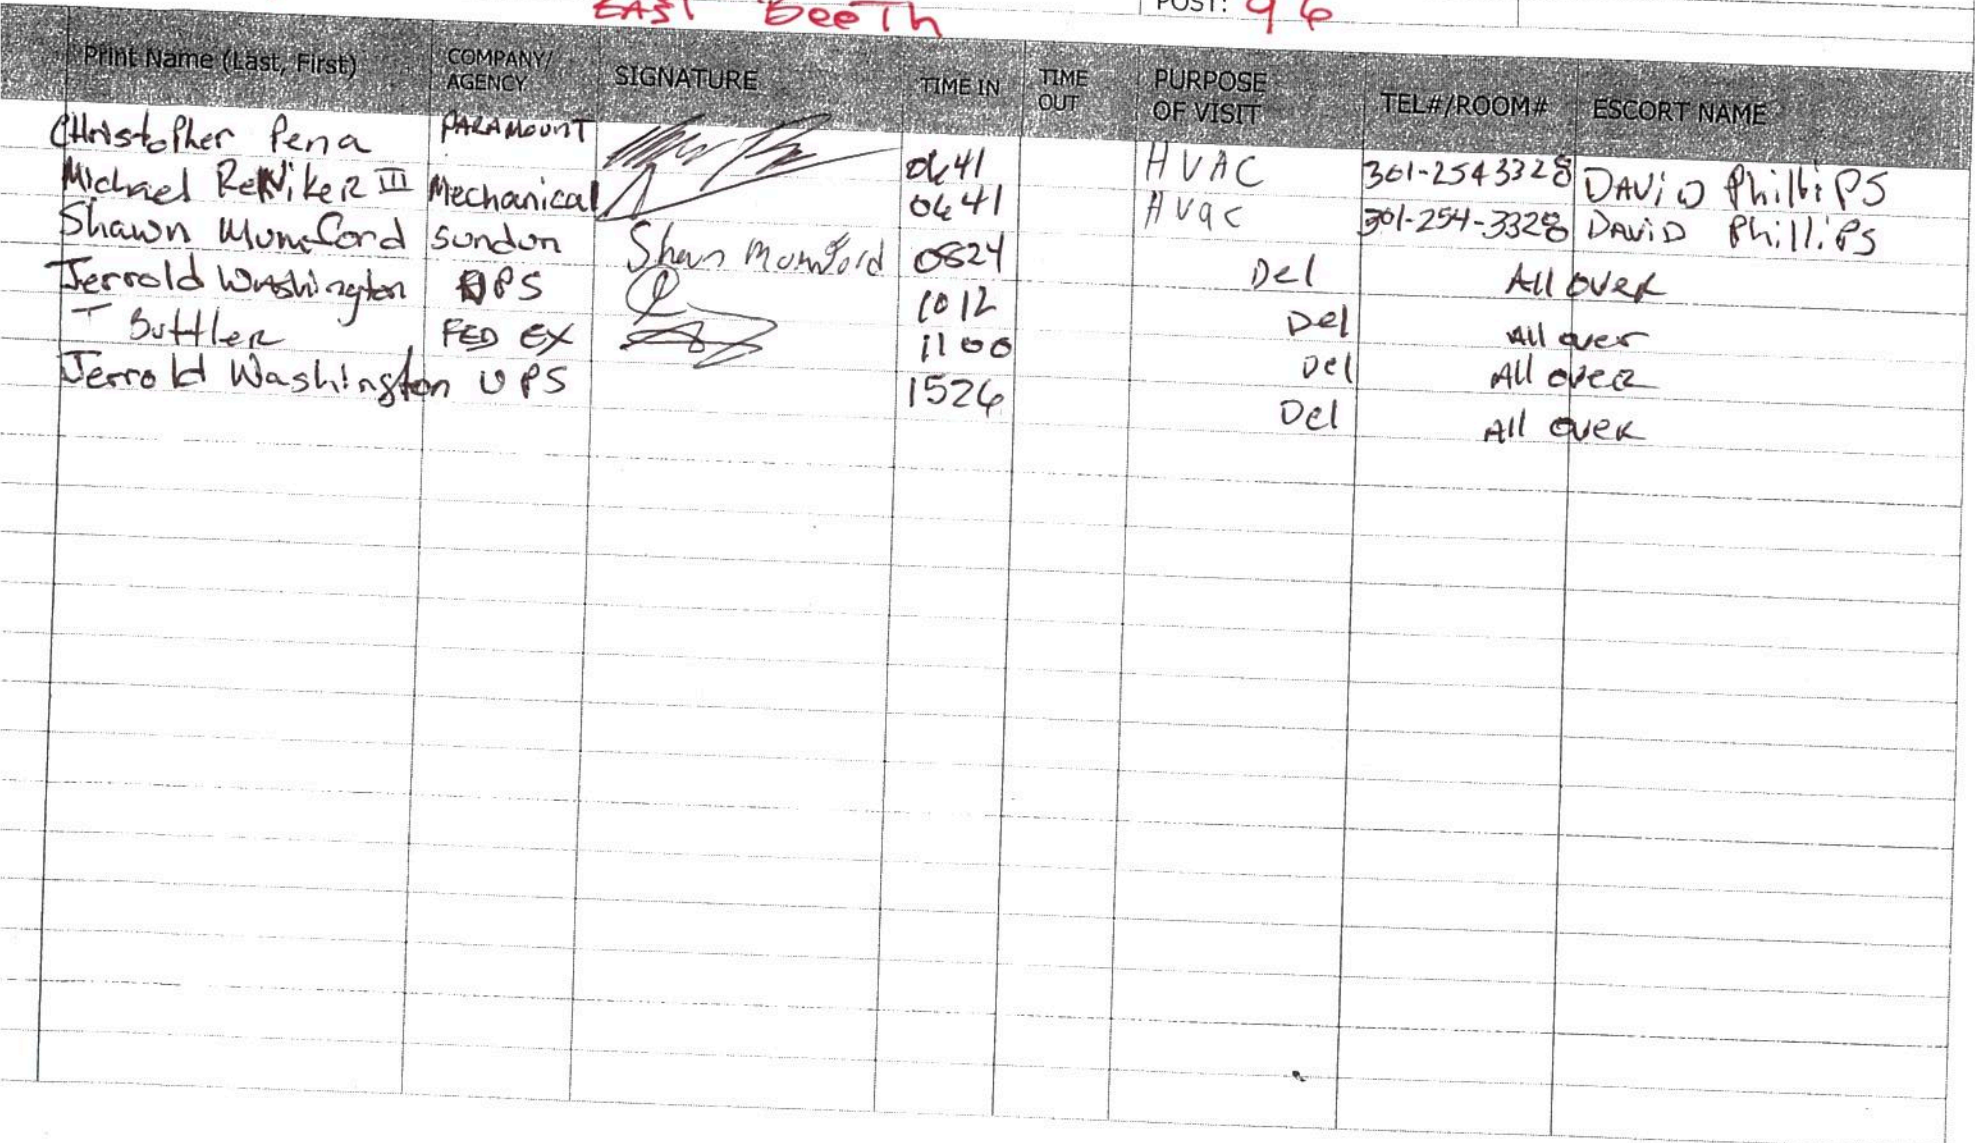 EAST BeeTh POST: 96
Print Name (Last, First) COMPANY/ AGENCY SIGNATURE TIME IN TIME OUT PURPOSE OF VISIT TEL#/ROOM# ESCORT NAME
CHristoPher Pena PARAMOUNT 0641 HVAC 301-254 3328 DAViD PhilliPS
Michael ReNikeR III Mechanical 0641 HVac 301-254-3328 DAViD Phillips
Shawn Mumford sundun Shawn Mumford 0824 Del All over
Jerrold Washington UPS 1012 Del All over
T Buttler FED EX 1100 Del All oveR
Jerrold Washington UPS 1526 Del All over